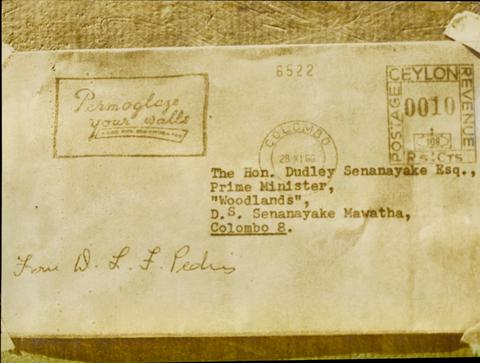 6522
Permoglaze
your walls
CEYLON
POSTAGE
REVENUE
0010
Rs. Cts.
COLOMBO
28 XI 66
The Hon. Dudley Senanayake Esq.,
Prime Minister,
"Woodlands",
D.S. Senanayake Mawatha,
Colombo 8.
From D. L. F. Pedris